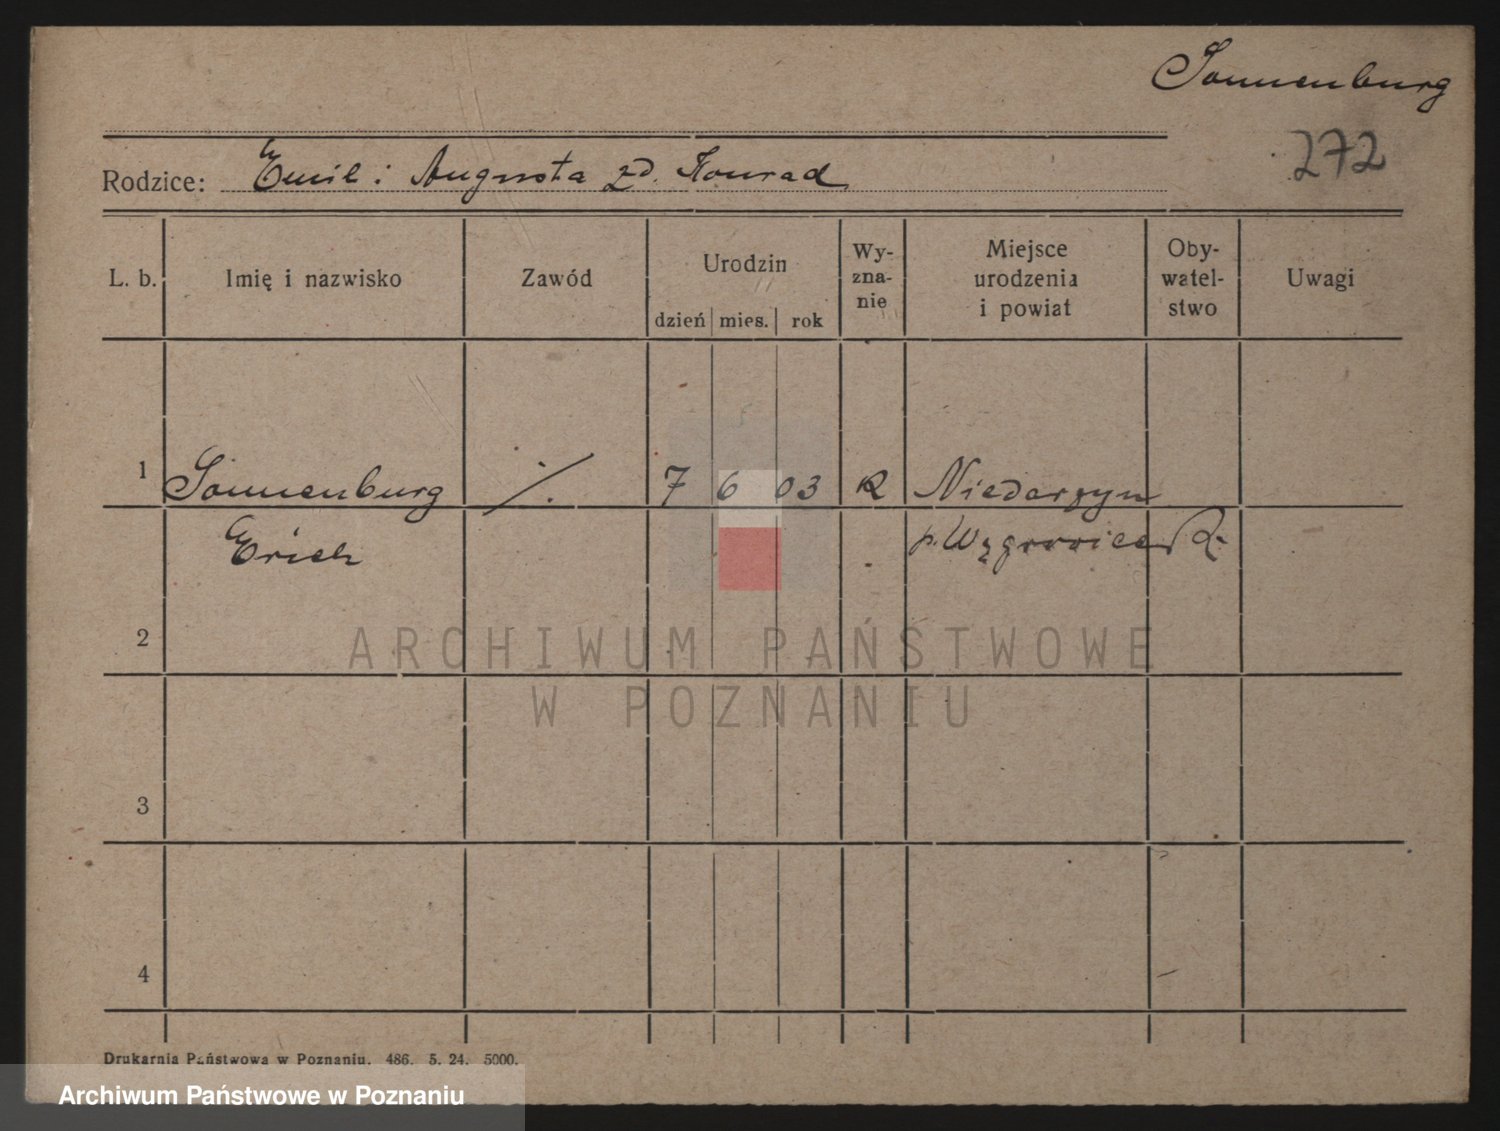 Sonnenburg
272
Rodzice: Emil i Augusta zd. Konrad
L. b. Imię i nazwisko Zawód Urodzin dzień mies. rok Wy-zna-nie Miejsce urodzenia i powiat Oby-watel-stwo Uwagi
1 Sonnenburg ./. 7 6 03 Niedarzyn
Erich p. R.
2
3
4
ARCHIWUM PAŃSTWOWE
W POZNANIU
Drukarnia Państwowa w Poznaniu. 486. 5. 24. 5000.
Archiwum Państwowe w Poznaniu